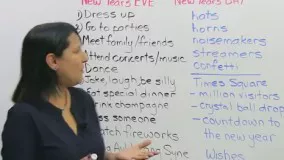 New Years EVE
1) Dress up
2) Go to parties
Meet family/friends
Attend concerts/music
Dance
Joke, laugh, be silly
special dinner
champagne
someone
fireworks
Auld Syne
New Years DAY
hats
horns
noisemakers
streamers
confetti
Times Square
- million visitors
- crystal ball drop
- countdown to
the new year
Wishes